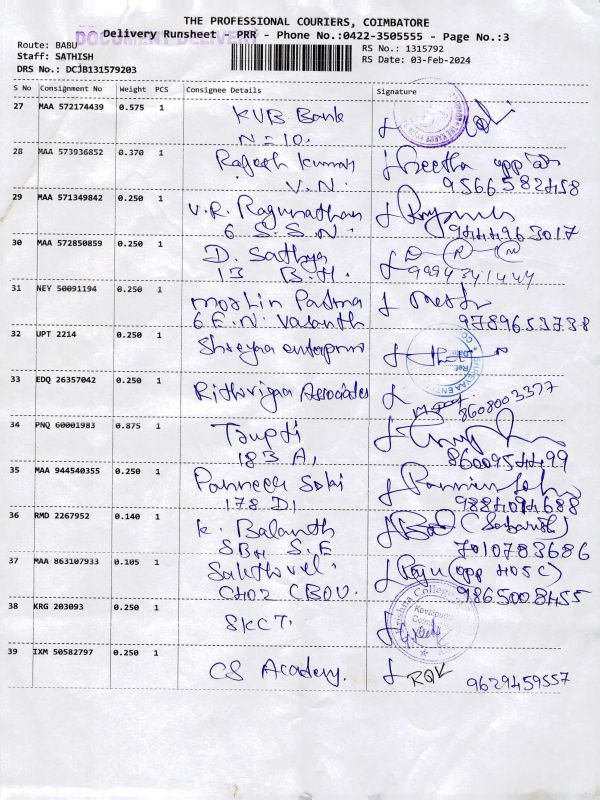 THE PROFESSIONAL COURIERS, COIMBATORE
DOCUMENT DELIVERY
Delivery Runsheet - PRR - Phone No.:0422-3505555 - Page No.:3
Route: BABU
RS No.: 1315792
Staff: SATHISH
RS Date: 03-Feb-2024
DRS No.: DCJB131579203
S No Consignment No Weight PCS Consignee Details Signature
27 MAA 572174439 0.575 1 KVB Bank
N=10.
28 MAA 573936852 0.370 1 Rajesh Kumar
V.N. 9566582458
29 MAA 571349842 0.250 1 V.R. Ragunathan
6 S.S.N. 9444963017
30 MAA 572850859 0.250 1 D. Sathya
13 B.H. 9994341444
31 NEY 50091194 0.250 1 Padma
6.E.N. Vasanth 9789653738
32 UPT 2214 0.250 1 Shreyaa enterprises
33 EDQ 26357042 0.250 1 Associates
8608003377
34 PNQ 60001983 0.875 1 Trupti
183 A1 8600954499
35 MAA 944540355 0.250 1
178 D1 9884094688
36 RMD 2267952 0.140 1 K. Balanth
SBH S.E 7010783686
37 MAA 863107933 0.105 1 Sakthivel Raju (opp 405 C)
C402 CBOV. 9865008455
38 KRG 203093 0.250 1 SKCT
39 IXM 50582797 0.250 1 CS Academy. 9629459557